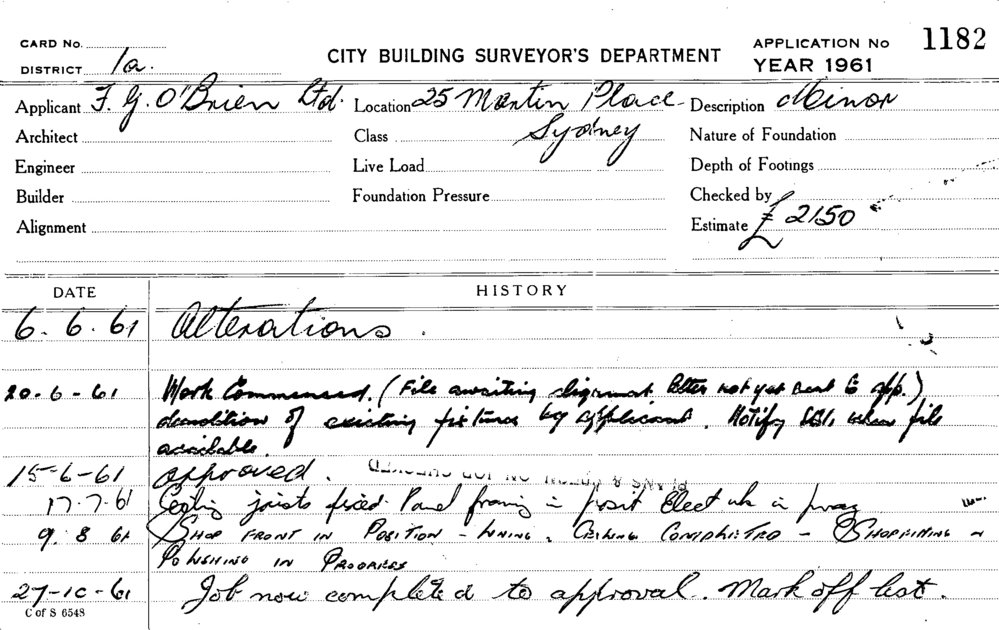 CARD No.
CITY BUILDING SURVEYOR'S DEPARTMENT
APPLICATION No 1182
DISTRICT 1a.
YEAR 1961
Applicant F. G. O'Brien Ltd. Location 25 Martin Place Description Minor
Architect Class Sydney Nature of Foundation
Engineer Live Load Depth of Footings
Builder Foundation Pressure Checked by
Alignment Estimate £ 2150
DATE HISTORY
6. 6. 61 Alterations.
20-6-61 Work Commenced. (File awaiting alignment letter not yet sent to app.)
demolition of existing fixtures by applicant. Notify when file
available.
15-6-61 approved.
17.7.61 Ceiling joists fixed Panel framing in posit Elect wk in prog
9. 8 61 SHOP FRONT IN POSITION - LINING, CEILING COMPLETED -
POLISHING IN PROGRESS
27-10-61 Job now completed to approval. Mark off list.
C of S 6548